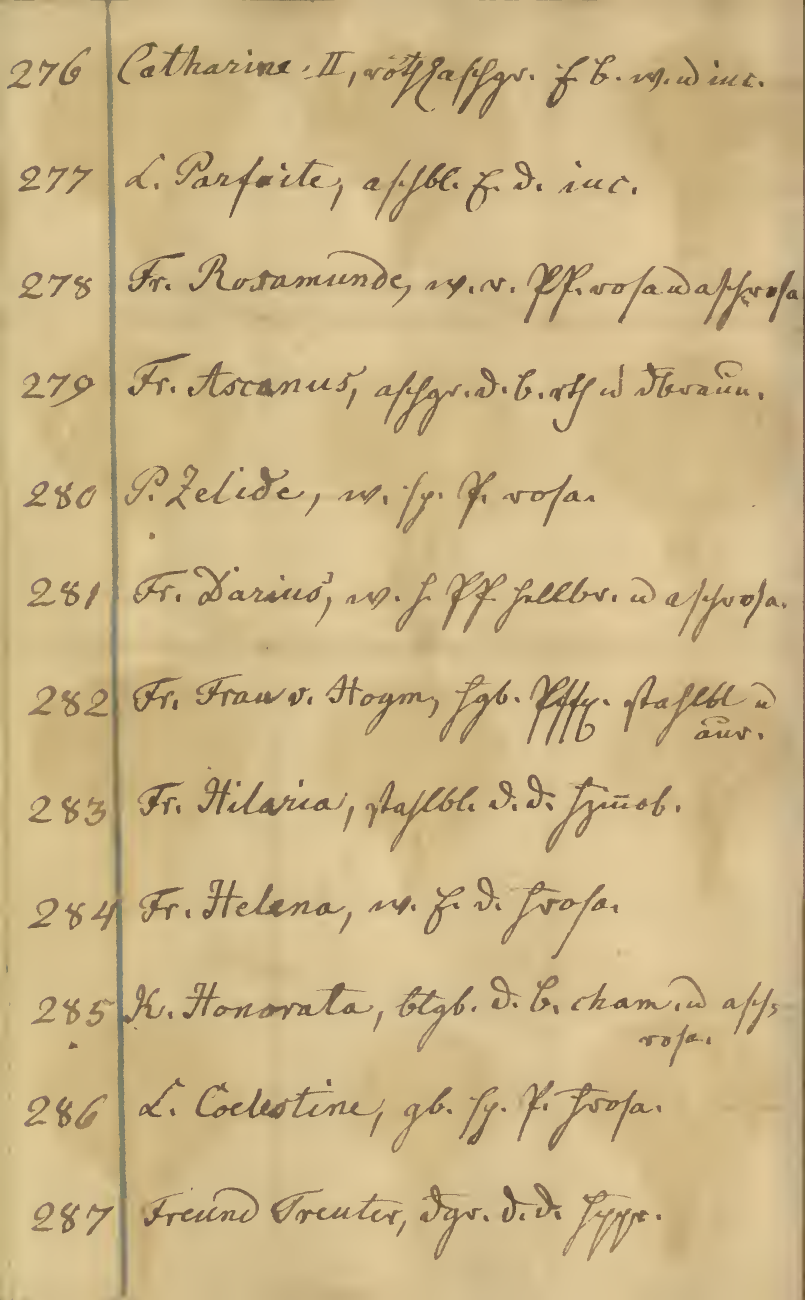 276 Catharine II, röthl aschgr. f. b. w. u inc.
277 L. Parfaite, aschbl. f. d. inc.
278 Fr. Rosamunde, w. r. Pf. rosa u aschrosa
279 Fr. Ascanus, aschgr. d. b. rth u dbraun.
280 P. Zelide, w. sp. P. rosa.
281 Fr. Darius, w. h. Pf hellbr. u aschrosa.
282 Fr. Frau v. Hoym, hgb. stahlbl u
aur.
283 Fr. Hilaria, stahlbl. d. d. hzinob.
284 Fr. Helena, w. f. d. hrosa.
285 K. Honorata, btgb. d. b. cham. u asch
rosa.
286 L. Coelestine, gb. sp. P. hrosa.
287 Freund Treuter, dgr. d. d.